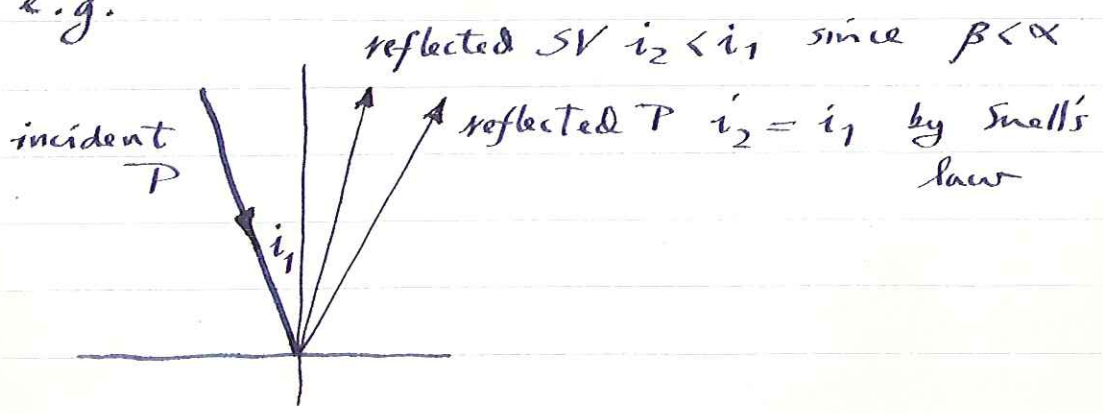 e.g.
reflected SV i₂ < i₁ since β < α
incident P
reflected P i₂ = i₁ by Snell's law
i₁